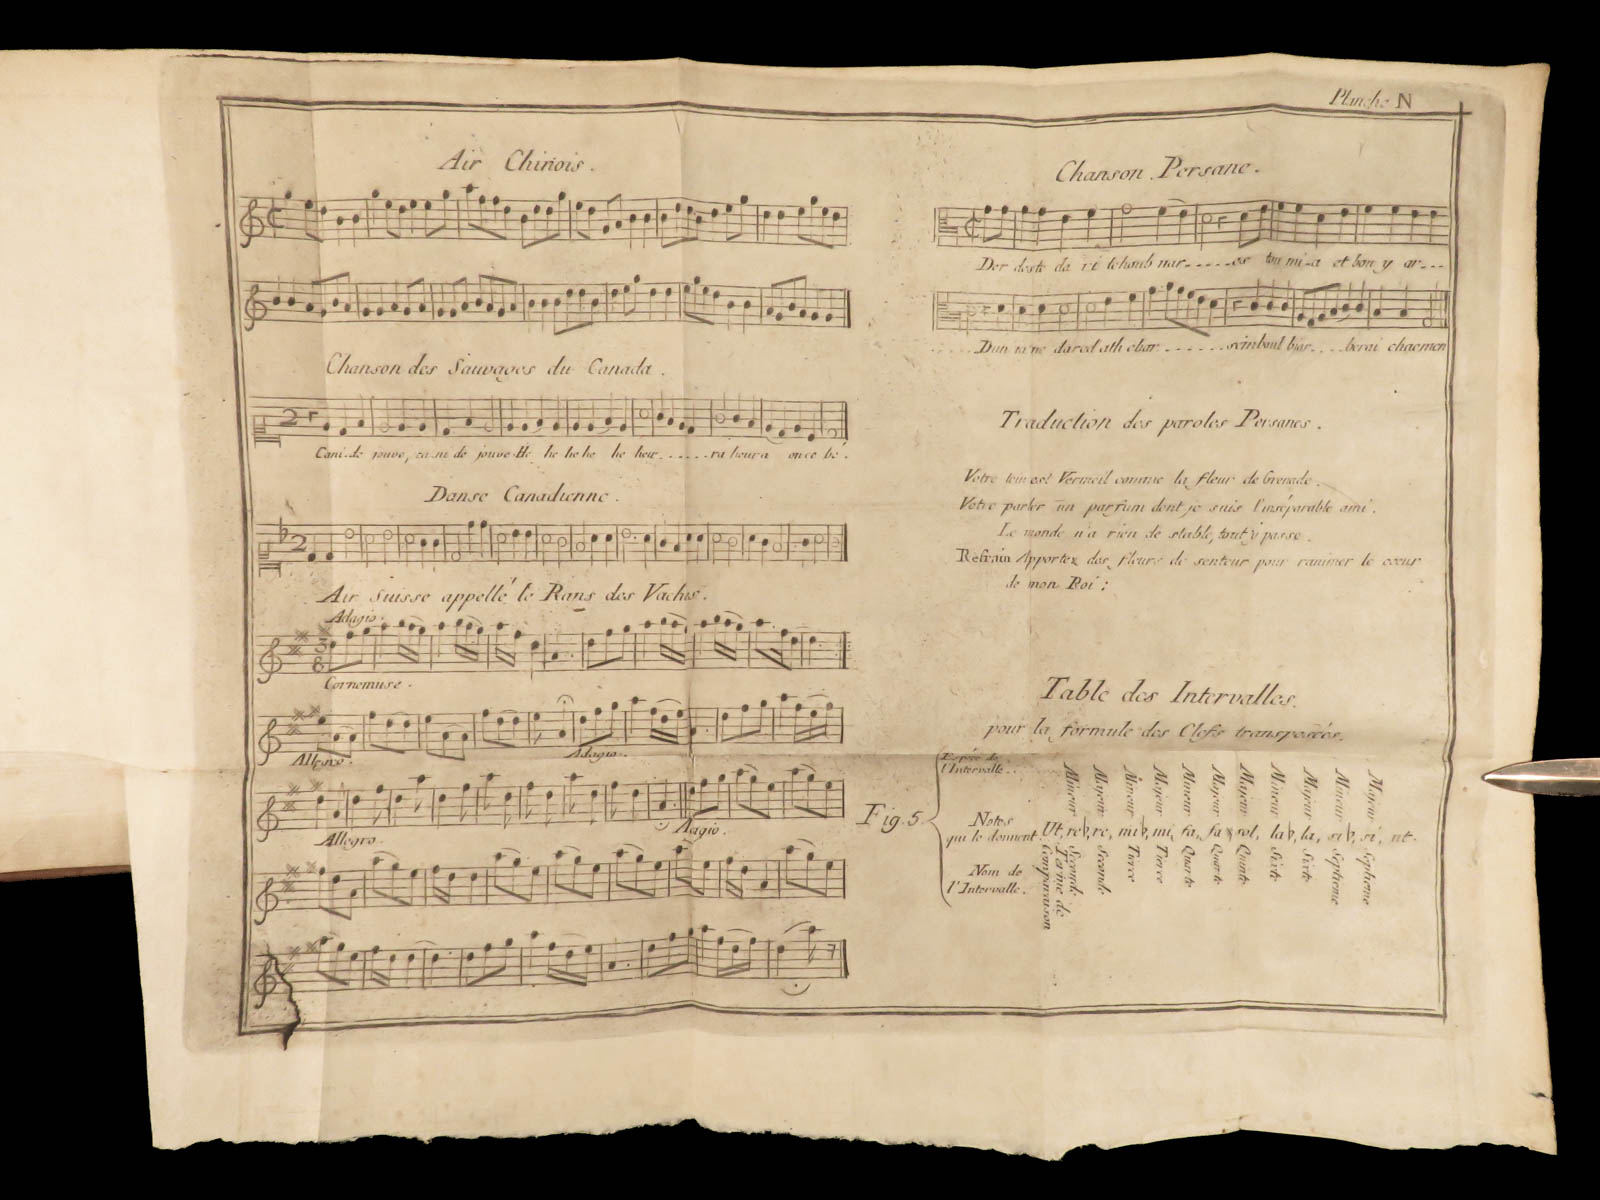 Planche N
Air Chinois.
Chanson des Sauvages du Canada.
Cani-de jouve, ca-ni de jouve He he he he he heur.....ra heura once bé.
Danse Canadienne.
Air Suisse appellé le Rans des Vaches.
Adagio.
Cornemuse.
Allegro.
Adagio.
Allegro.
Adagio.
Chanson Persane.
Der deste da ri tchoub nar.....es tou mi-a et bou y ar...
Dun ia ne dared ath ebar.......seinboul biar....berai chaemen
Traduction des paroles Persanes.
Votre tein est Vermeil comme la fleur de Grenade.
Votre parler un parfum dont je suis l'inséparable ami.
Le monde n'a rien de stable, tout y passe.
Refrain Apportez des fleurs de senteur pour ranimer le cœur
de mon Roi:
Table des Intervalles.
pour la formule des Clefs transposées.
Fig. 5.
Espèce de
l'Intervalle.
Mineur Majeur Mineur Majeur Mineur Majeur Majeur Mineur Majeur Mineur Majeur
Notes
qui le donnent. Ut, re b, re, mi b, mi, fa, fa x sol, la b, la, si b, si, ut.
Nom de
l'Intervalle.
Terme de comparaison Seconde Seconde Tierce Tierce Quarte Quarte Quinte Sixte Sixte Septieme Septieme